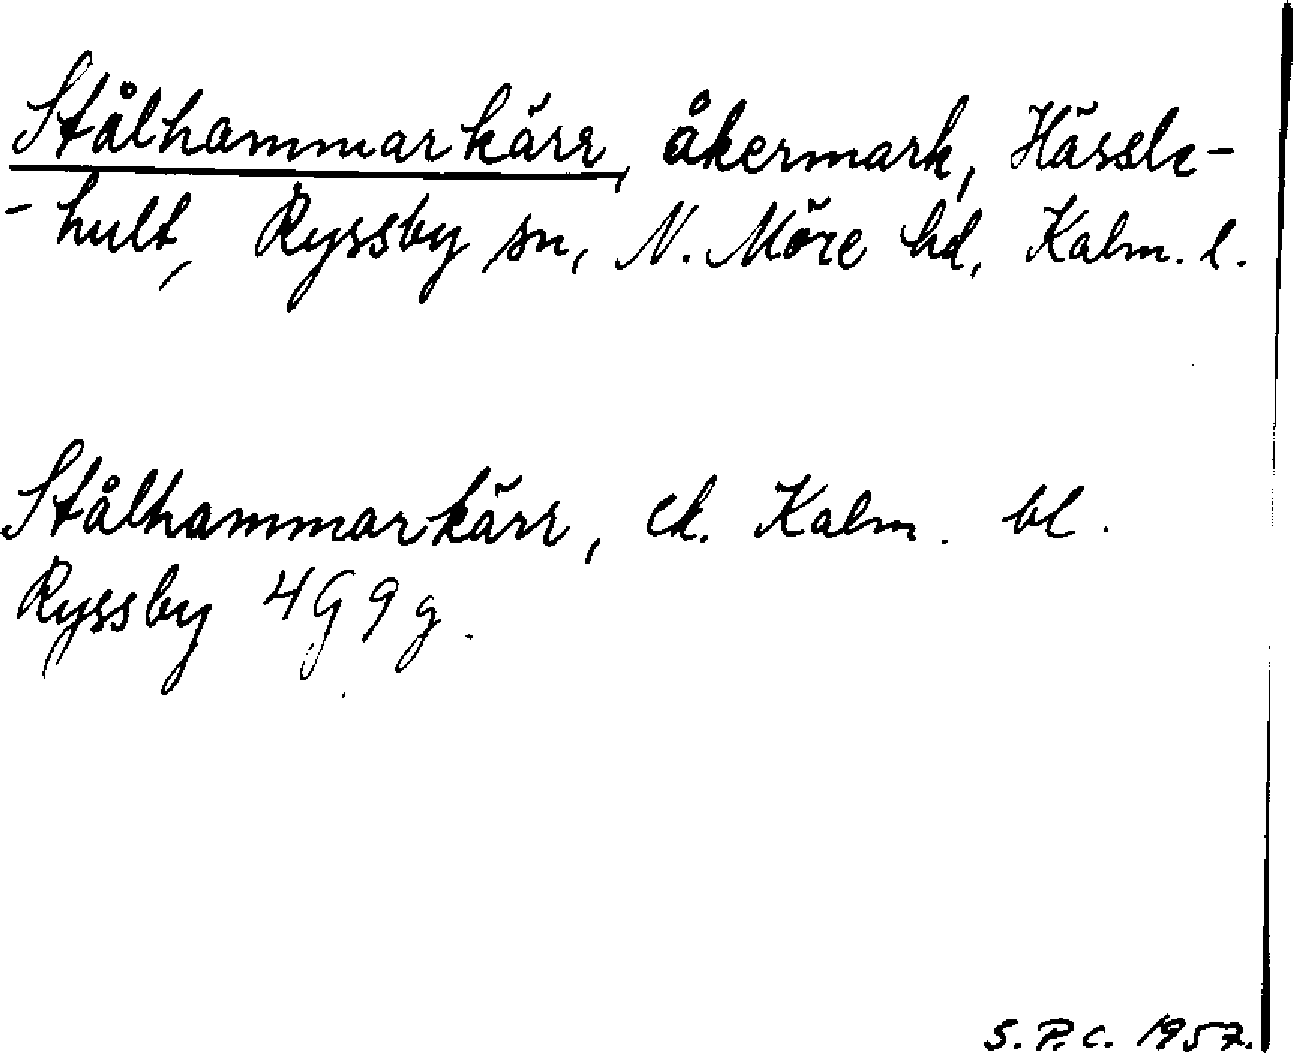 Stålhammarkärr, åkermark, Hässle-
-hult, Ryssby sn, N. Möre hd, Kalm. l.
Stålhammarkärr, ek. Kalm. bl.
Ryssby 4G9g.
S. P. C. 1957.